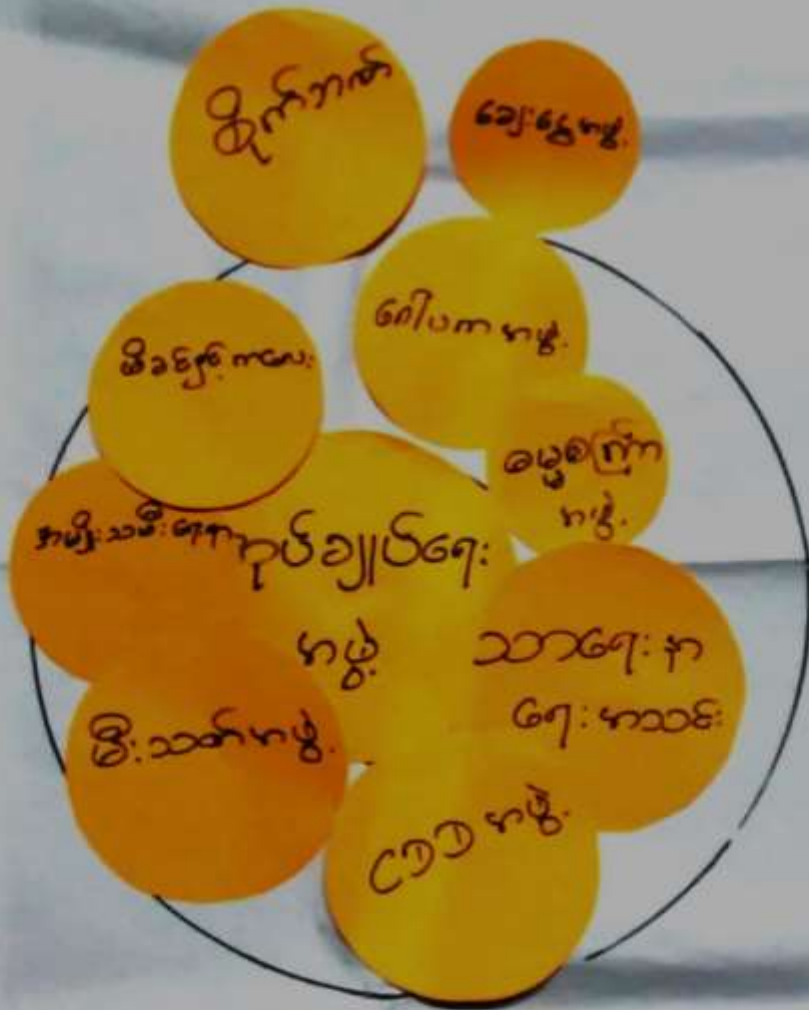 စိုက်ဘဏ်
ချေးငွေအဖွဲ့
ဂေါပကအဖွဲ့
မိခင်နှင့်ကလေး
ဓမ္မစကြာ
အဖွဲ့
အမျိုးသမီးရေးရာ
အုပ်ချုပ်ရေး
အဖွဲ့
သာရေးနာ
ရေးအသင်း
မီးသတ်အဖွဲ့
CDD အဖွဲ့